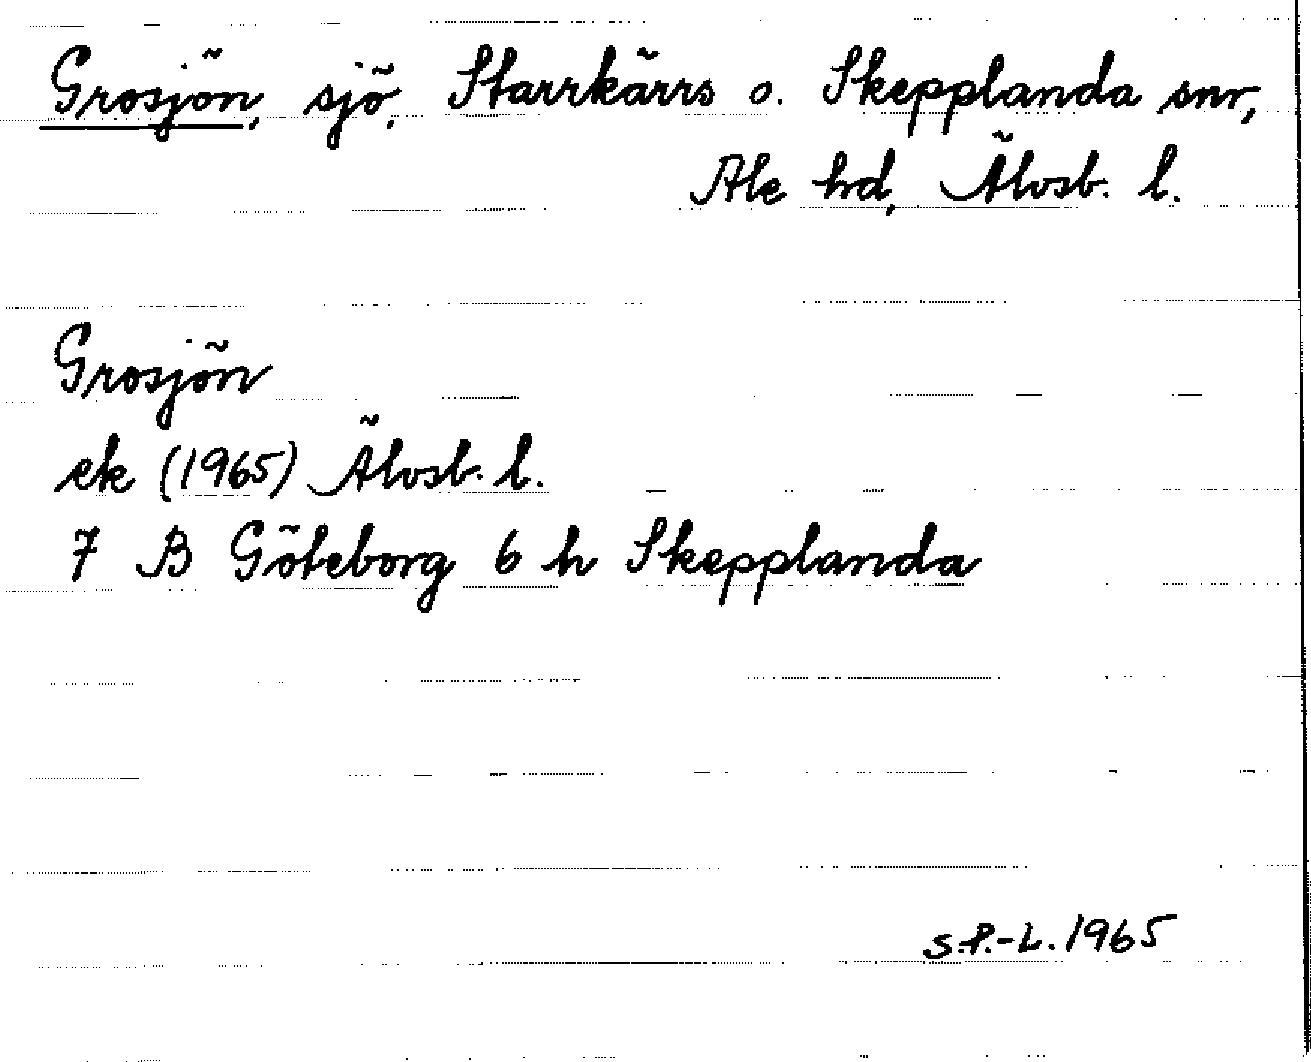 Grosjön, sjö, Starrkärrs o. Skepplanda snr,
Ale hd, Älvsb. l.
Grosjön
ek (1965) Älvsb. l.
7 B Göteborg 6 h Skepplanda
S.P.-L. 1965